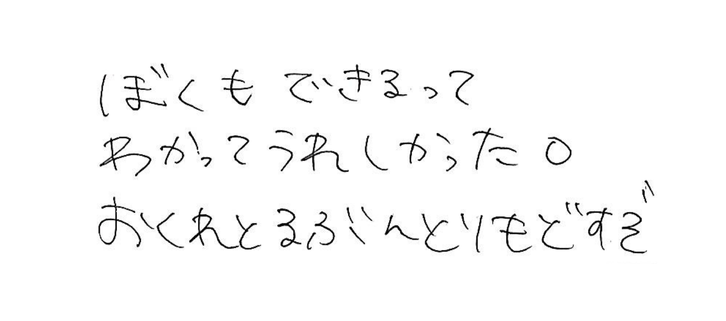 ぼくもできるって
わかってうれしかった。
おくれとるぶんとりもどすぞ